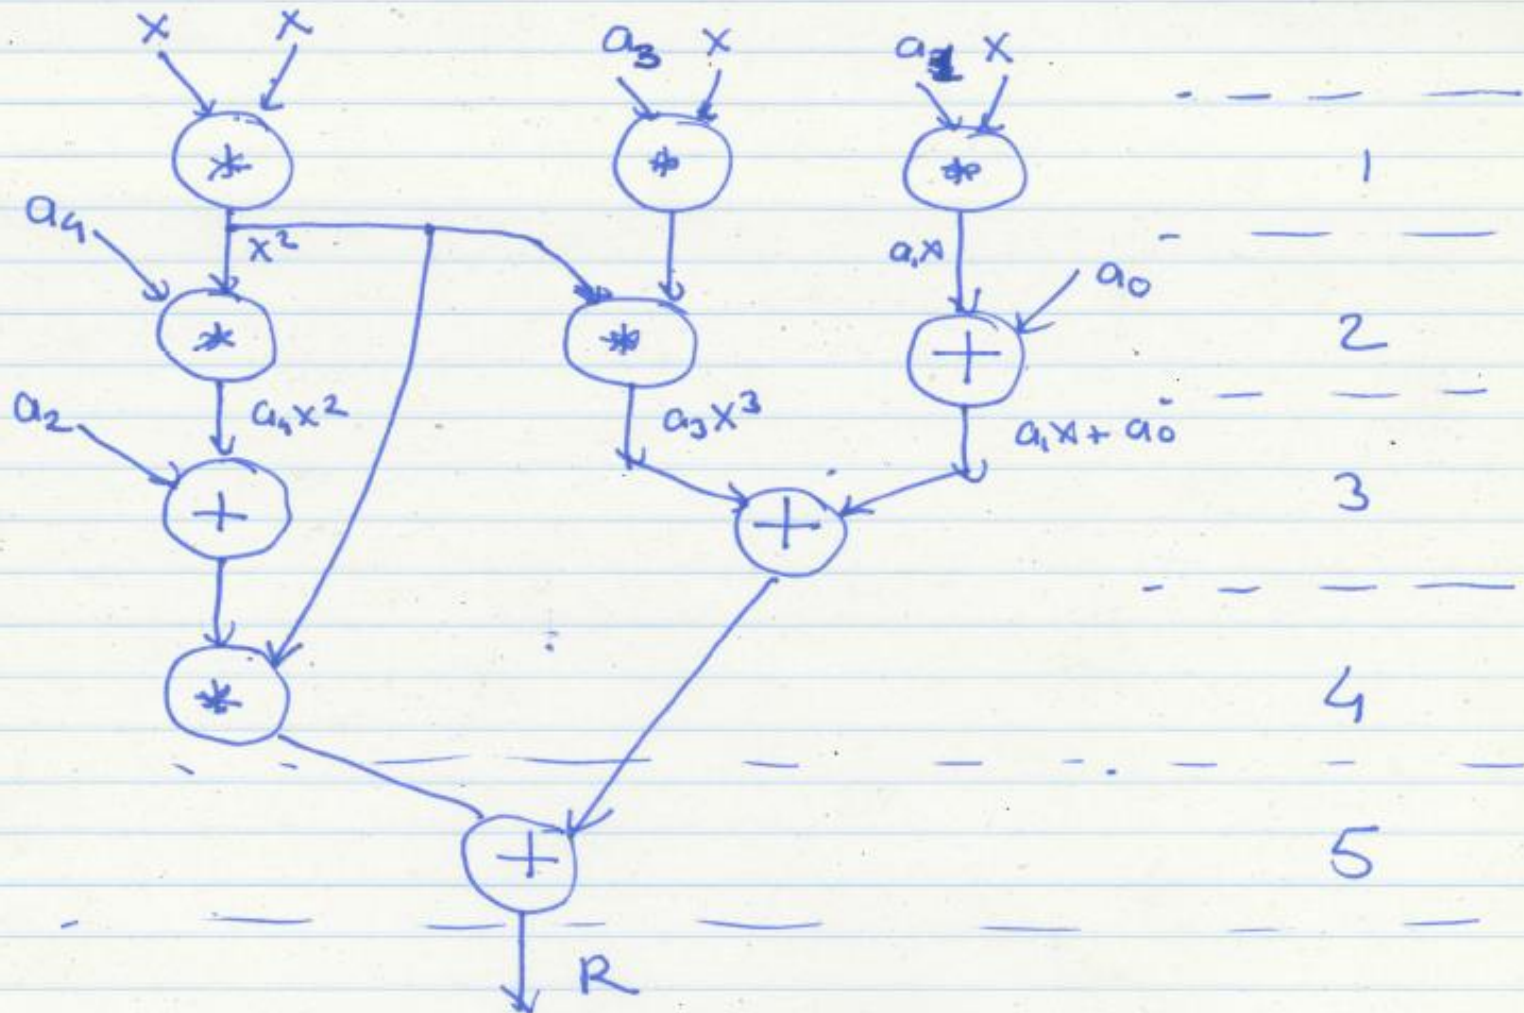 x x a3 x a1 x
* * * 1
a4 x² a1x a0
* * + 2
a2 a4x² a3x³ a1x + a0
+ + 3
* 4
+ 5
R